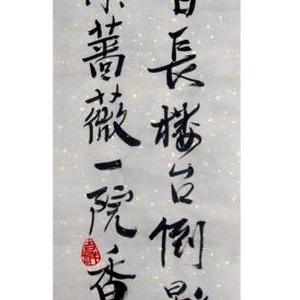 日長楼台倒影
薔薇一院香